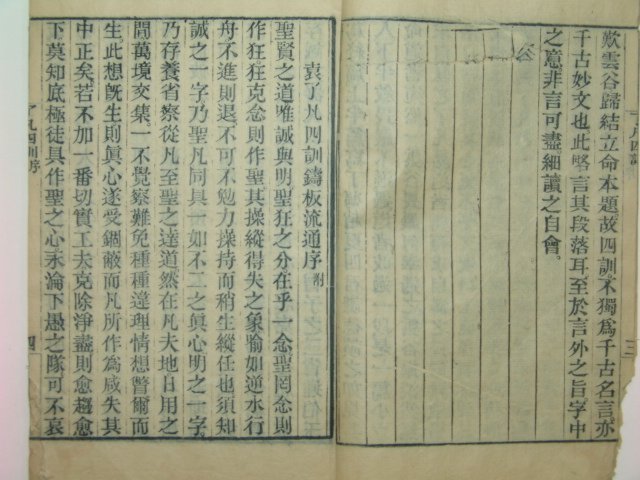 歎雲谷歸結立命本題故四訓不獨爲千古名言亦
千古妙文也此略言其段落耳至於言外之旨字中
之意非言可盡細讀之自會。
袁了凡四訓鑄板流通序 附
聖賢之道唯誠與明聖狂之分在乎一念聖罔念則
作狂狂克念則作聖其操縱得失之象喻如逆水行
舟不進則退不可不勉力操持而稍生縱任也須知
誠之一字乃聖凡同具一如不二之眞心明之一字。
乃存養省察從凡至聖之達道然在凡夫地日用之
間萬境交集一不覺察難免種種違理情想瞥爾而
生此想旣生則眞心遂受錮蔽而凡所作爲咸失其
中正矣若不加一番切實工夫克除淨盡則愈趨愈
下莫知底極徒具作聖之心永淪下愚之隊可不哀
了凡四訓序
四